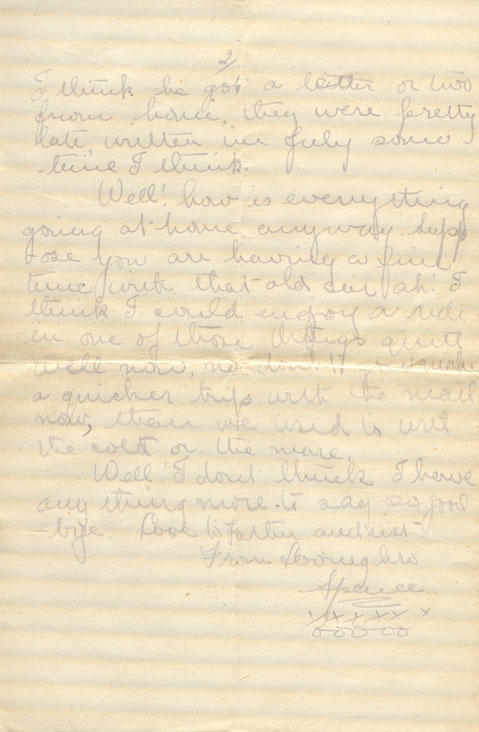 2/
I think he got a letter or two
from home, they were pretty
late, written in July some
time I think.
Well! how is everything
going at home anyway. Supp
ose you are having a fine
time with that old car ah! I
think I could enjoy a ride
in one of those things quite
well now, no don't it
a quicker trip with the mail
now, than we used to with
the colt or the mare.
Well! I don't think I have
anything more to say so good
bye. Love to Father and rest
From Loving bro
Spence.
XXXXX X
OOOOO